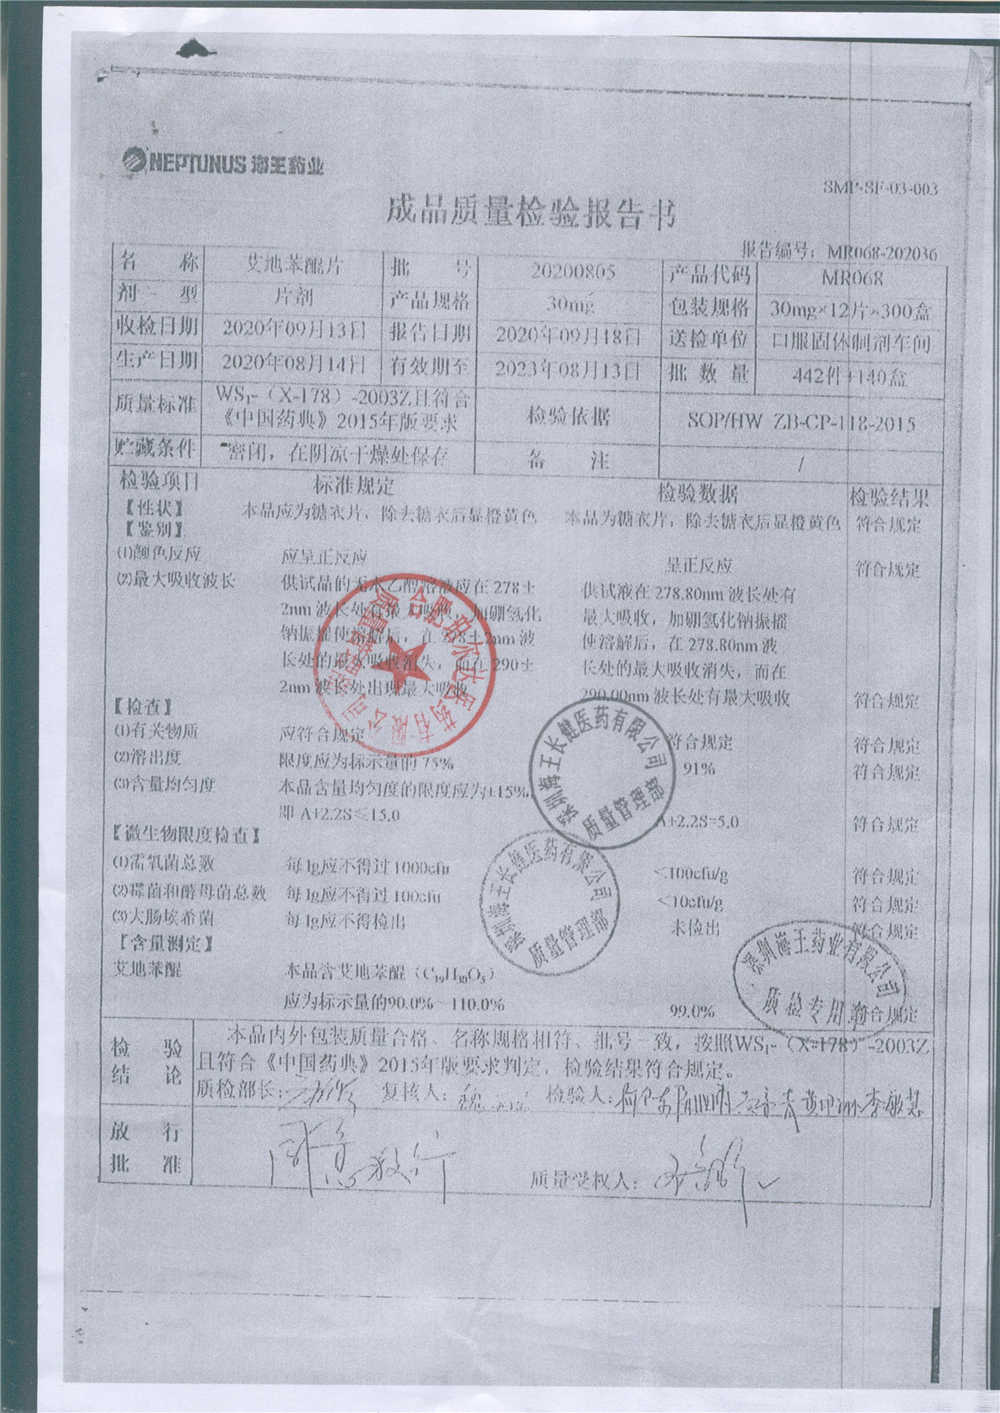 NEPTUNUS 海王药业
SMP-SF-03-003
成品质量检验报告书
报告编号：MR068-202036
名 称 艾地苯醌片 批 号 20200805 产品代码 MR068
剂 型 片剂 产品规格 30mg 包装规格 30mg×12片×300盒
收检日期 2020年09月13日 报告日期 2020年09月18日 送检单位 口服固体制剂车间
生产日期 2020年08月14日 有效期至 2023年08月13日 批 数 量 442件+140盒
质量标准 WS₁-（X-178）-2003Z且符合《中国药典》2015年版要求 检验依据 SOP/HW ZB-CP-118-2015
贮藏条件 密闭，在阴凉干燥处保存 备 注 /
检验项目 标准规定 检验数据 检验结果
【性状】 本品应为糖衣片，除去糖衣后显橙黄色 本品为糖衣片，除去糖衣后显橙黄色 符合规定
【鉴别】
⑴颜色反应 应呈正反应 呈正反应 符合规定
⑵最大吸收波长 供试品的无水乙醇溶液应在278± 供试液在278.80nm波长处有
2nm波长处有最大吸收，加硼氢化 最大吸收，加硼氢化钠振摇
钠振摇使溶解后，在278±2nm波 使溶解后，在278.80nm波
长处的最大吸收消失，而在290± 长处的最大吸收消失，而在
2nm波长处出现最大吸收 290.00nm波长处有最大吸收 符合规定
【检查】
⑴有关物质 应符合规定 符合规定 符合规定
⑵溶出度 限度应为标示量的75% 91% 符合规定
⑶含量均匀度 本品含量均匀度的限度应为±15%，
即A+2.2S≤15.0 A+2.2S=5.0 符合规定
【微生物限度检查】
⑴需氧菌总数 每1g应不得过1000cfu <100cfu/g 符合规定
⑵霉菌和酵母菌总数 每1g应不得过100cfu <10cfu/g 符合规定
⑶大肠埃希菌 每1g应不得检出 未检出 符合规定
【含量测定】
艾地苯醌 本品含艾地苯醌（C₁₉H₃₀O₅）
应为标示量的90.0%~110.0% 99.0% 符合规定
检 验 结 论
本品内外包装质量合格、名称规格相符、批号一致，按照WS₁-（X-178）-2003Z
且符合《中国药典》2015年版要求判定，检验结果符合规定。
质检部长： 复核人： 检验人：
放 行 批 准 同意放行 质量受权人：
深圳海王长健医药有限公司
质量管理部
深圳海王长健医药有限公司
质量管理部
深圳海王药业有限公司
质检专用章